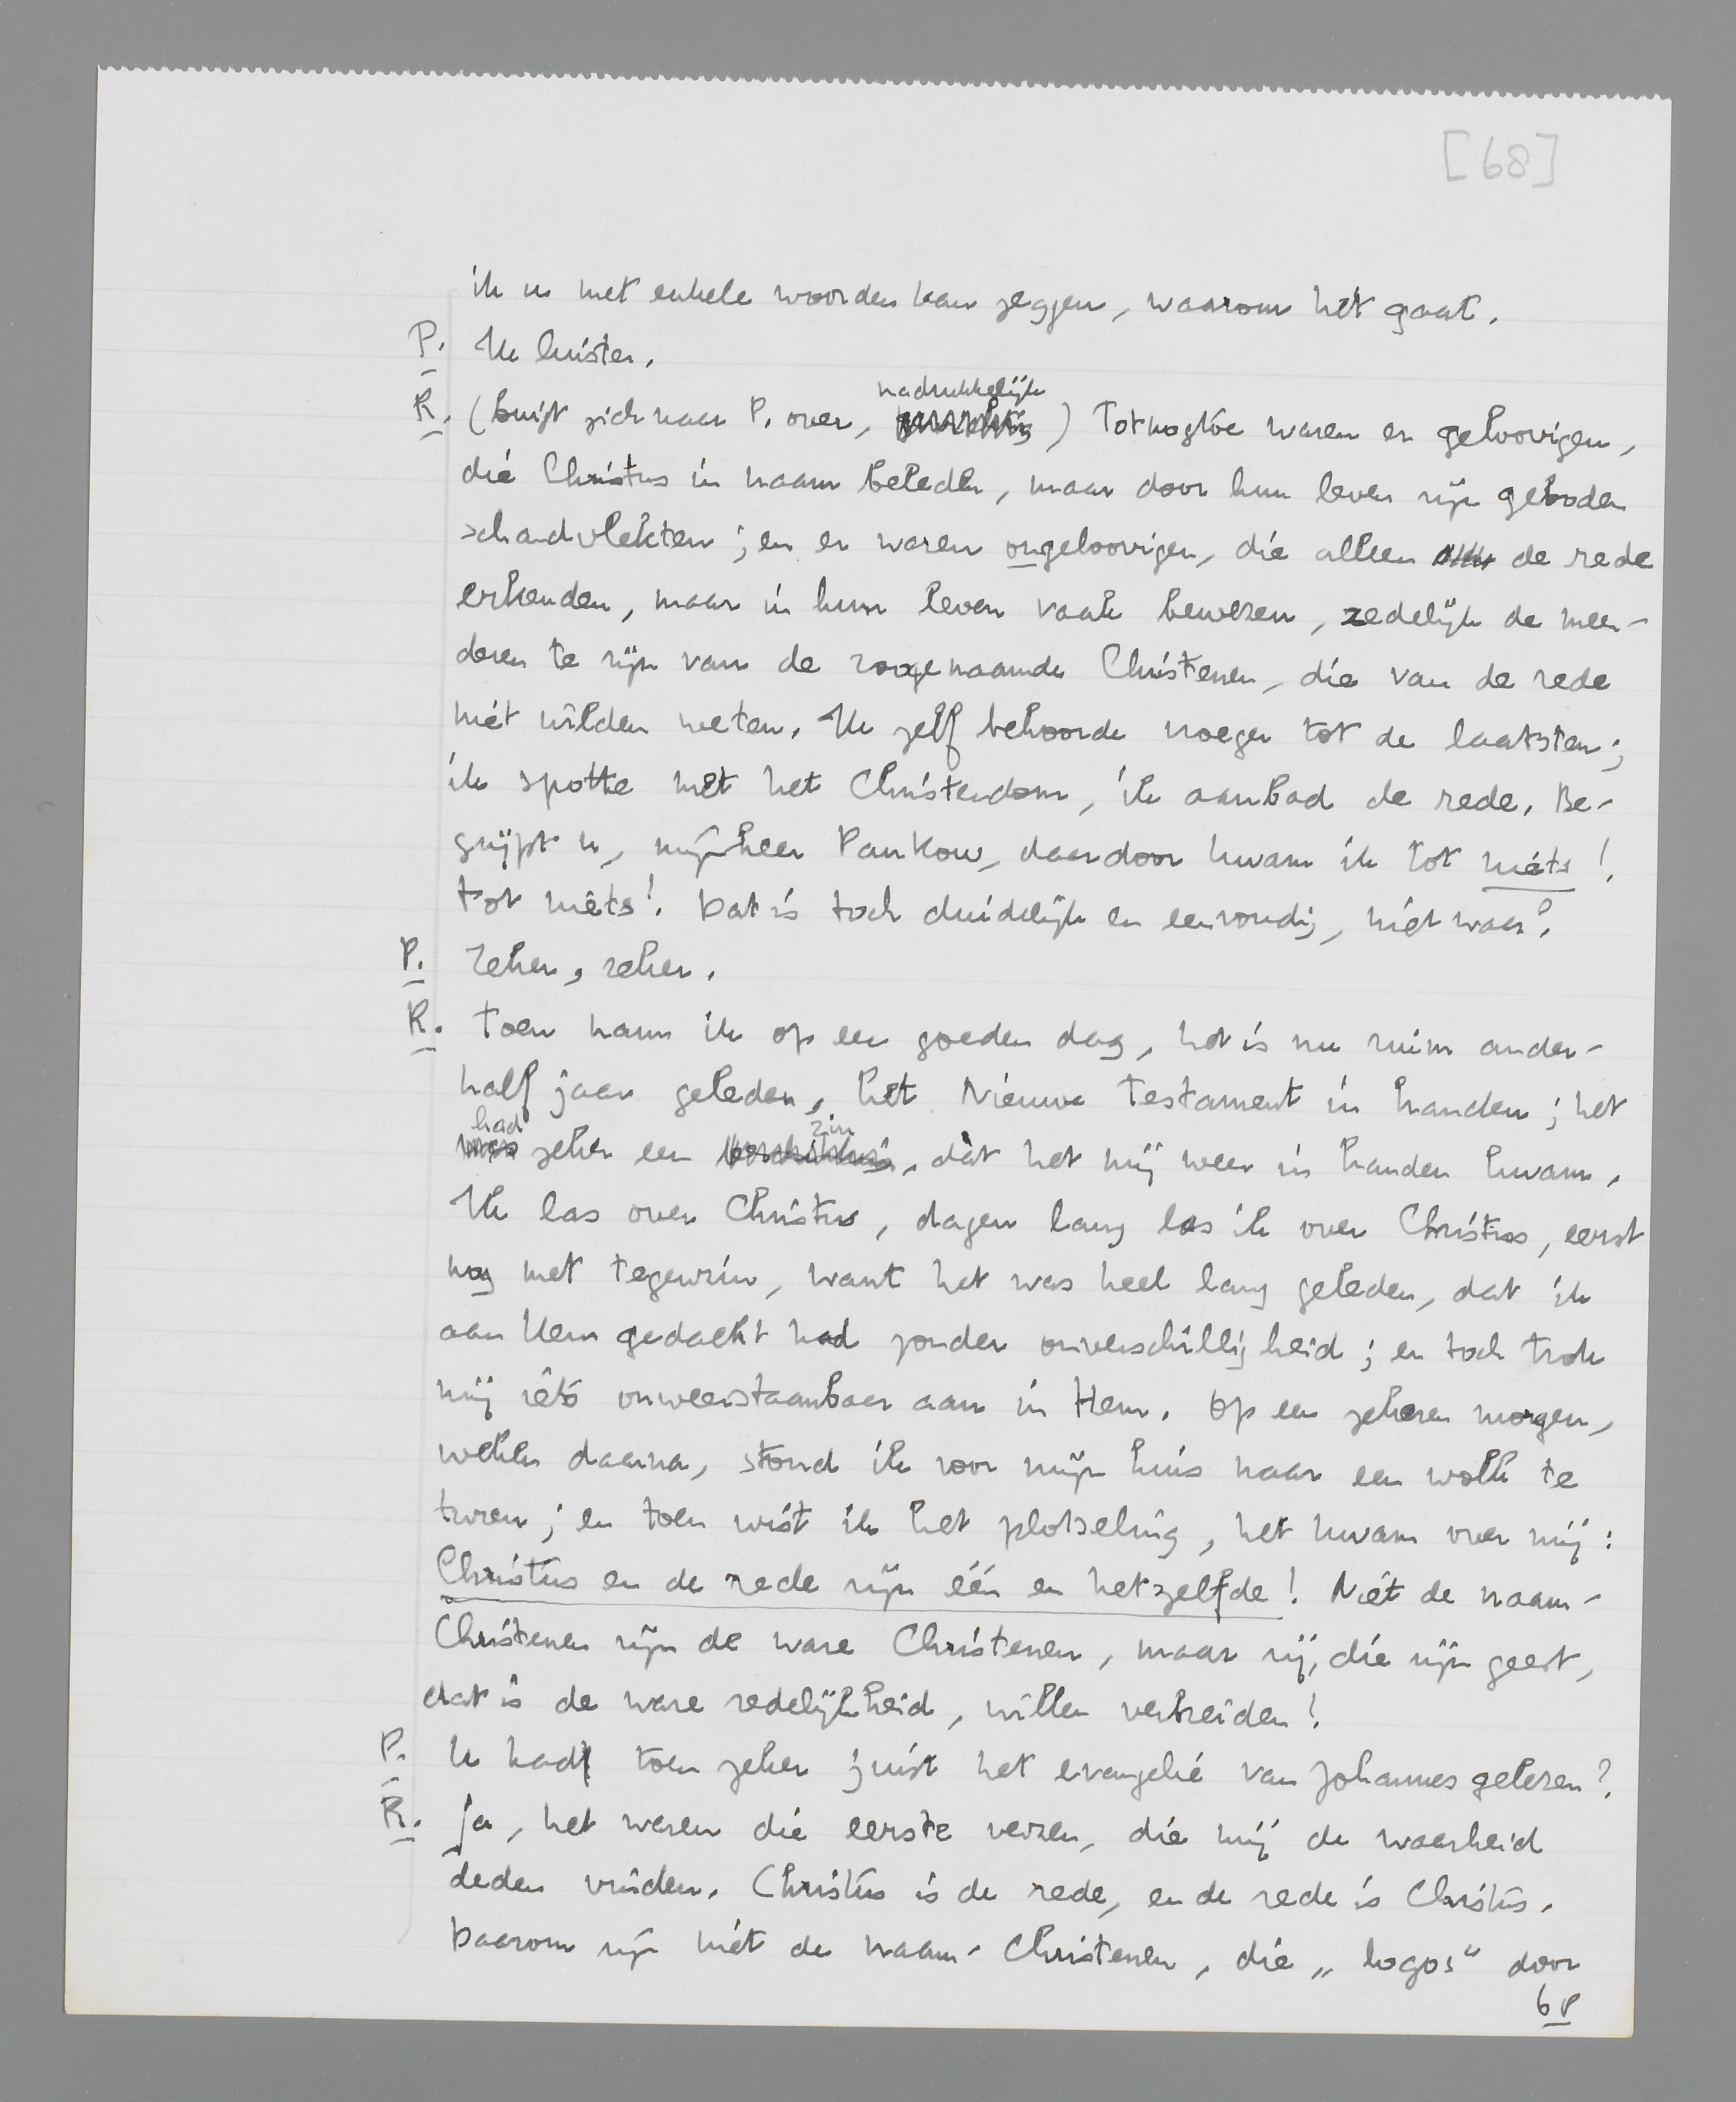 [68]
ik u met enkele woorden kan zeggen, waarom het gaat.
P. Ik luister.
nadrukkelijk
R. (buigt zich naar P. over, ) Totnogtoe waren er geloovigen,
die Christus in naam beleden, maar door hun leven zijn geboden
schandvlekten; en er waren ongeloovigen, die alleen de rede
erkenden, maar in hun leven vaak bewezen, zedelijk de meer-
deren te zijn van de zoogenaamde Christenen, die van de rede
niet wilden weten. Ik zelf behoorde vroeger tot de laatsten;
ik spotte met het Christendom, ik aanbad de rede. Be-
grijpt u, mijnheer Pankow, daardoor kwam ik tot niets!
tot niets! Dat is toch duidelijk en eenvoudig, niet waar?
P. Zeker, zeker.
R. Toen nam ik op een goeden dag, het is nu ruim ander-
half jaar geleden, het Nieuwe Testament in handen; het
had zin
was zeker een beschikking, dat het mij weer in handen kwam.
Ik las over Christus, dagen lang las ik over Christus, eerst
nog met tegenzin, want het was heel lang geleden, dat ik
aan Hem gedacht had zonder onverschilligheid; en toch trok
mij iets onweerstaanbaar aan in Hem. Op een zekeren morgen,
weken daarna, stond ik voor mijn huis naar een wolk te
turen; en toen wist ik het plotseling, het kwam over mij:
Christus en de rede zijn één en hetzelfde! Niet de naam-
Christenen zijn de ware Christenen, maar zij, die zijn geest,
dat is de ware redelijkheid, willen verbreiden!
P. U had toen zeker juist het evangelie van Johannes gelezen?
R. Ja, het waren die eerste verzen, die mij de waarheid
deden vinden. Christus is de rede, en de rede is Christus.
Daarom zijn niet de naam-Christenen, die „logos" door
68